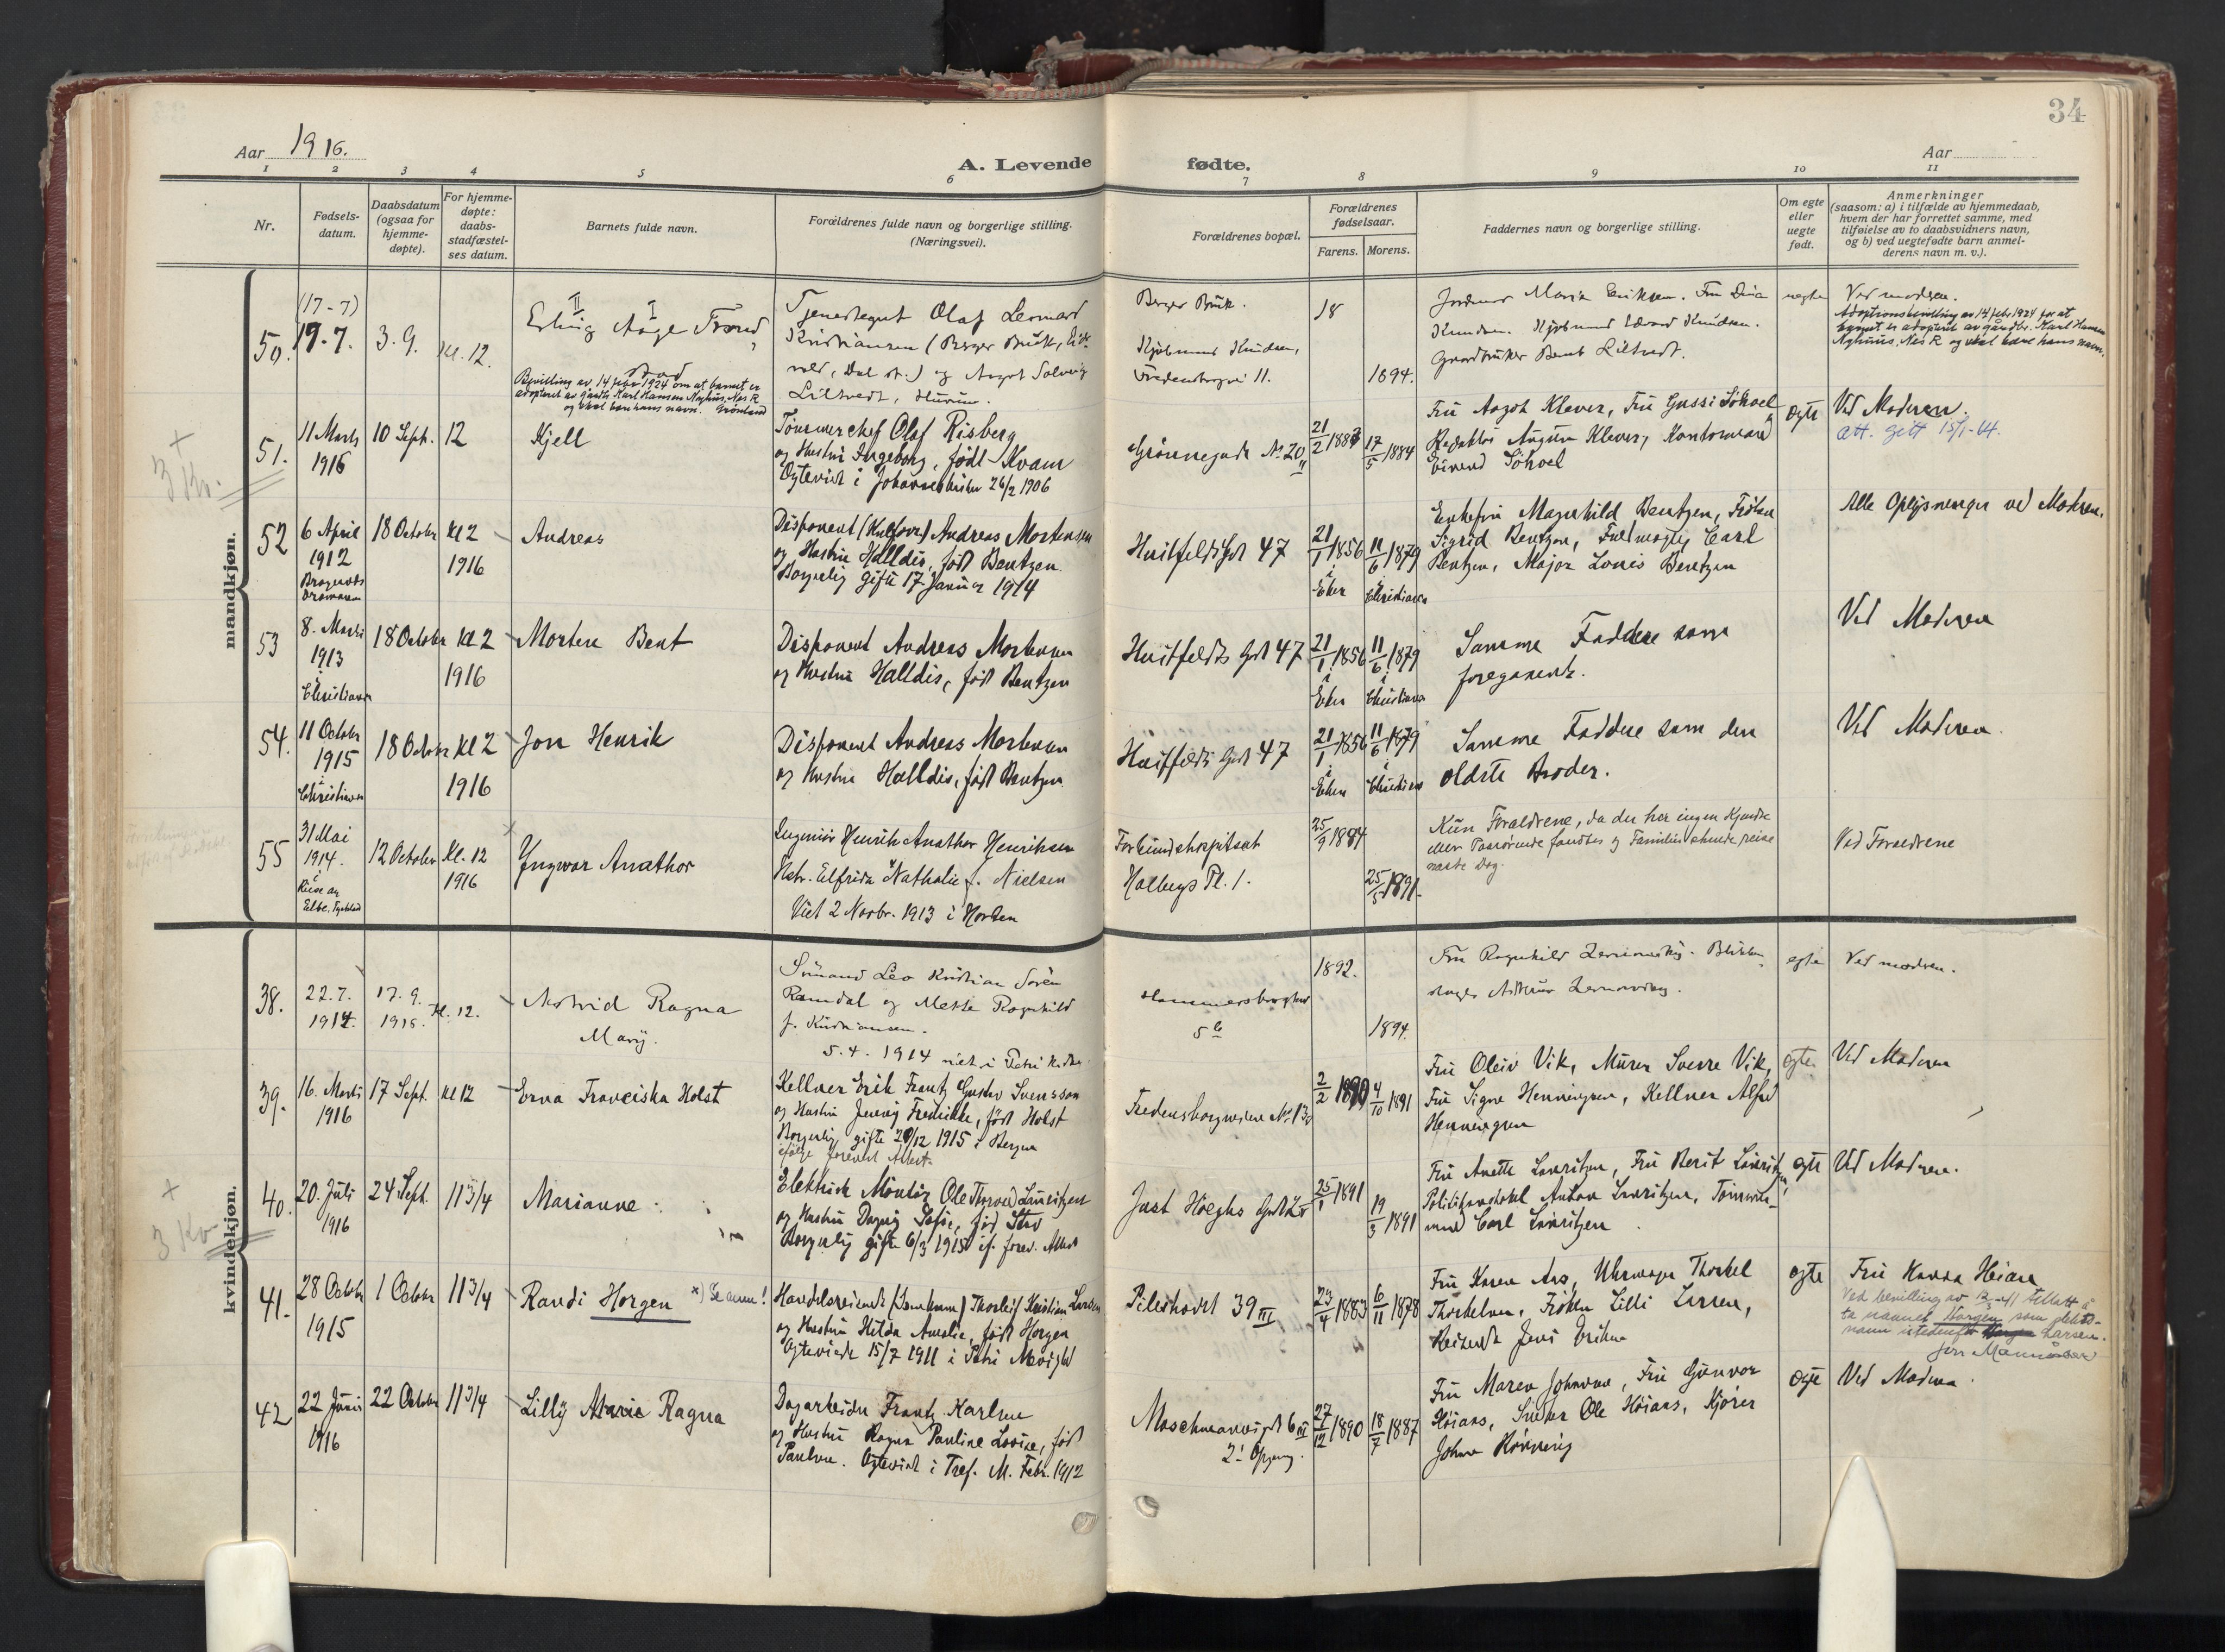 34
Aar 1916.
A. Levende fødte.
Aar
1 2 3 4 5 6 7 8 9 10 11
Nr.
Fødsels-
datum.
Daabsdatum
(ogsaa for
hjemme-
døpte).
For hjemme-
døpte:
daabs-
stadfæstel-
ses datum.
Barnets fulde navn.
Forældrenes fulde navn og borgerlige stilling.
(Næringsvei).
Forældrenes bopæl.
Forældrenes
fødselsaar.
Farens. Morens.
Faddernes navn og borgerlige stilling.
Om egte
eller
uegte
født.
Anmerkninger
(saasom: a) i tilfælde av hjemmedaab,
hvem der har forrettet samme, med
tilføielse av to daabsvidners navn,
og b) ved uegtefødte barn anmel-
derens navn m. v.).
mandkjøn.
50.
(17-7)
19.7.
3.9.
kl. 12.
II I
Erling Aage Trond
Bevilling av 14 febr 1924 om at barnet er
adopteret av gårdbr. Karl Hansen Nes R
og skal bære hans navn.
Tjenestegut Olaf Leonard
Kristiansen (Berger Bruk,
Dal st.) og Aagot Solveig
Liltvedt, Hurum.
Berger Bruk.
Kjøbmand Knudsen,
Fredensborgvei 11.
18
1894.
Jordmor Marie Eriksen. Fru
Knudsen. Kjøbmand Edvard Knudsen.
Gaardbruker Bent Liltvedt.
uegte
Ved moderen.
Adoptionsbevilling av 14 febr 1924 for at
barnet er adopteret av gårdbr. Karl Hansen
Nes R og skal bære hans navn.
+
3 Kr.
51.
11 Marts
1916
10 Sept.
12
Kjell
Olaf Risberg
og Hustru Ingeborg, født Kvam
Egteviet i Johanneskirken 26/2 1906
Grønnegade No 20
21/2 1883
17/5 1884
Fru Aagot Klever, Fru Gussi
Redaktør August Klever, Kontormand
Eivind
egte
Ved Moderen.
att. gitt 15/1-44.
52
6 April
1912
Bragernes
Drammen
18 October
Kl 2
1916
Andreas
Disponent Andreas Mortensen
og Hustru Halldis, født Bentzen.
Borgerlig gifte 17. Januar 1914
Huitfeldts Gt 47
21/1 1856
i
Eker
11/6 1879
Christiania
Enkefru Magnhild Bentzen, Frøken
Sigrid Bentzen, Fuldmægtig Carl
Bentzen, Major Louis Bentzen
Alle Oplysninger ved Moderen.
53
8. Marts
1913
i
Christiania
18 October
Kl 2
1916
Morten Bent
Disponent Andreas Mortensen
og Hustru Halldis, født Bentzen
Huitfeldts Gt 47
21/1 1856
i
Eker
11/6 1879
i
Christiania
Samme Faddere som
foregaaende.
Ved Moderen
54.
11 October
1915
i
Christiania
18 October
Kl 2
1916
Jon Henrik
Disponent Andreas Mortensen
og Hustru Halldis, født Bentzen
Huitfeldts Gt 47
21/1 1856
i
Eker
11/6 1879
i
Christiania
Samme Faddere som den
ældste Broder.
Ved Moderen.
55
31 Mai
1914.
i
12 October
Kl. 12
1916
Yngvar Anathor
Ingeniør Henrik Anathor Henriksen
Hstr. Elfrida Nathalie f. Nielsen
Viet 2 Novbr. 1913 i Horten
Forbundshospitset
Holbergs Pl. 1.
25/9 1884
25/5 1891.
Kun Forældrene, da der her ingen Kjendte
eller Paarørende fandtes og Familien skulde reise
næste Dag.
Ved Forældrene
kvindekjøn.
38.
22.7.
1914.
17.9.
1916.
kl. 12.
Astrid Ragna
Mary.
Sømand Leo Kristian Søren
Ramdal og Mette Ragnhild
f. Kristiansen.
5.4.1914 viet i Petri Kirke
Hammersborgbod
5b
1892.
1894.
Fru Ragnhild
egte
Ved moderen.
39.
16. Marts
1916
17 Sept.
Kl 12
Erna Franciska Holst
Kellner Erik Frantz Gustav Svensson
og Hustru Jenny Fredrikke, født Holst
Borgerlig gifte 20/12 1915 i Bergen
ifølge forevist Attest.
Fredensborgveien No 13
2/2 1890
4/10 1891
Fru Oleiv Vik, Murer Sverre Vik,
Fru Signe Henningsen, Kellner Alfred
Henningsen
egte
Ved Moderen
+
3 Kr
40.
20. Juli
1916
24 Sept.
11 3/4
Marianne
Elektrisk Montør Ole Thorvald Lauritzen
og Hustru Dagny Sofie, født
Borgerlig gifte 6/3 1915 if. forev. Attest
Just Høeghs Gt
25/1 1891
19/3 1891
Fru Anette Lauritzen, Fru Berit Lauritzen,
Politikonstabel Anton Lauritzen, Tømmer-
mand Carl Lauritzen
egte
Ved Moderen.
41.
28 October
1915
1 October
11 3/4
Randi Horgen
x) Se anm!
Handelsreisende Thorleif Kristian Larsen
og Hustru Hilda Amalie, født Horgen
Egteviede 15/7 1911 i Petri Menighed
Pilestrædet 39 III
23/4 1883
6/11 1878
Fru Karen Aas, Uhrmager Thorkel
Thorkelsen, Frøken Lilli Larsen,
Reisende Jens Eriksen
egte
Fru Hanna Heiaas
Ved bevilling av 12/3-41 tillatt å
ta navnet Horgen som slekts-
navn istedenfor Larsen.
42
22 Juni
1916
22 October
11 3/4
Lilly Marie Ragna
Dagarbeider Frantz Karlsen
og Hustru Ragna Pauline Lovise, født
Paulsen. Egteviet i Tref. M. Febr. 1912
6 III
2. Opgang.
27/12 1890
18/7 1887
Fru Maren Johnsen, Fru Gunvor
Høiaas, Snekker Ole Høiaas, Kjører
Johan Rønning
egte
Ved Moderen.